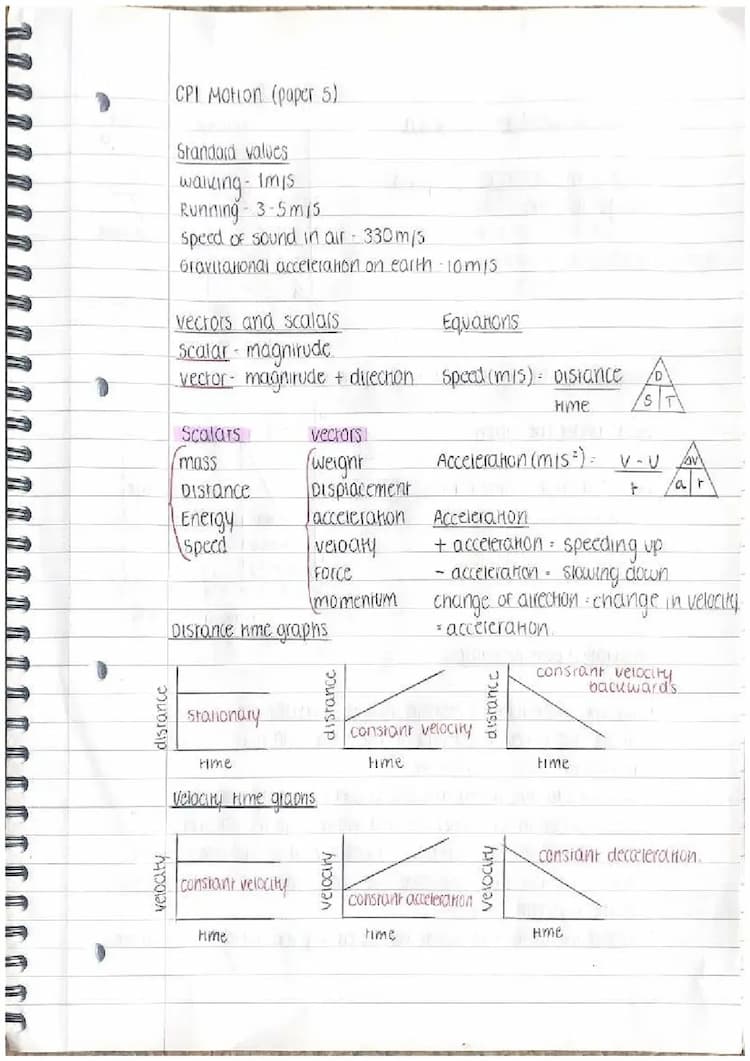 CP1 Motion (paper 5)
Standard values
Walking - 1m/s
Running - 3-5m/s
Speed of sound in air - 330m/s
Gravitational acceleration on earth - 10m/s
Vectors and scalars
Scalar - magnitude
Vector - magnitude + direction
Equations
Speed (m/s) = Distance
Time
D
S T
Scalars
mass
Distance
Energy
Speed
Vectors
Weight
Displacement
acceleration
velocity
Force
momentum
Acceleration (m/s²) = V - U
t
ΔV
a t
Acceleration
+ acceleration = speeding up
- acceleration = slowing down
change of direction = change in velocity
= acceleration.
Distance time graphs
distance
stationary
Time
distance
constant velocity
Time
distance
constant velocity
backwards
Time
Velocity time graphs
velocity
constant velocity
Time
velocity
constant acceleration
Time
velocity
constant decceleration.
Time